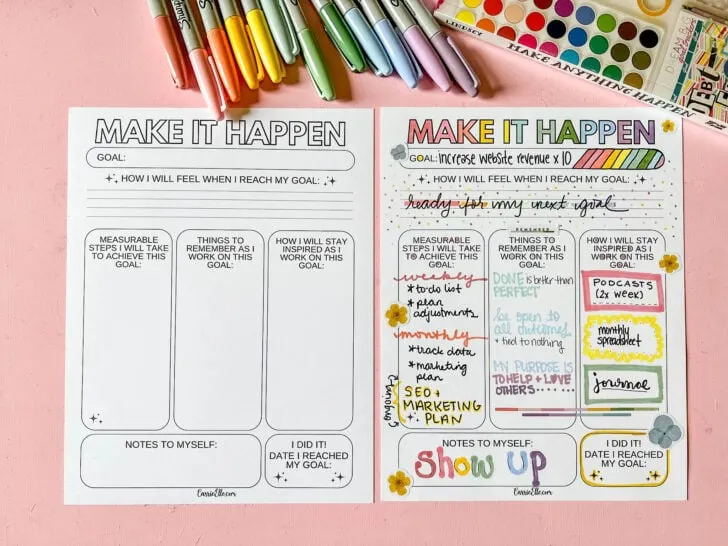 Sharpie
LINDSEY
MAKE ANYTHING HAPPEN
DREAM BIG
MAKE IT HAPPEN
GOAL:
HOW I WILL FEEL WHEN I REACH MY GOAL:
MEASURABLE
STEPS I WILL TAKE
TO ACHIEVE THIS
GOAL:
THINGS TO
REMEMBER AS I
WORK ON THIS
GOAL:
HOW I WILL STAY
INSPIRED AS I
WORK ON THIS
GOAL:
NOTES TO MYSELF:
I DID IT!
DATE I REACHED
MY GOAL:
CarrieElle.com
MAKE IT HAPPEN
GOAL: increase website revenue x 10
HOW I WILL FEEL WHEN I REACH MY GOAL:
ready for my next goal
REMEMBER
MEASURABLE
STEPS I WILL TAKE
TO ACHIEVE THIS
GOAL:
weekly
* to do list
* plan
adjustments
monthly
* track data
* marketing
plan
ongoing
SEO +
MARKETING
PLAN
THINGS TO
REMEMBER AS I
WORK ON THIS
GOAL:
DONE is better than
PERFECT
be open to
all outcomes
+ tied to nothing
MY PURPOSE IS
TO HELP + LOVE
OTHERS......
HOW I WILL STAY
INSPIRED AS I
WORK ON THIS
GOAL:
PODCASTS
(2x WEEK)
monthly
spreadsheet
journal
NOTES TO MYSELF:
Show UP
I DID IT!
DATE I REACHED
MY GOAL:
CarrieElle.com